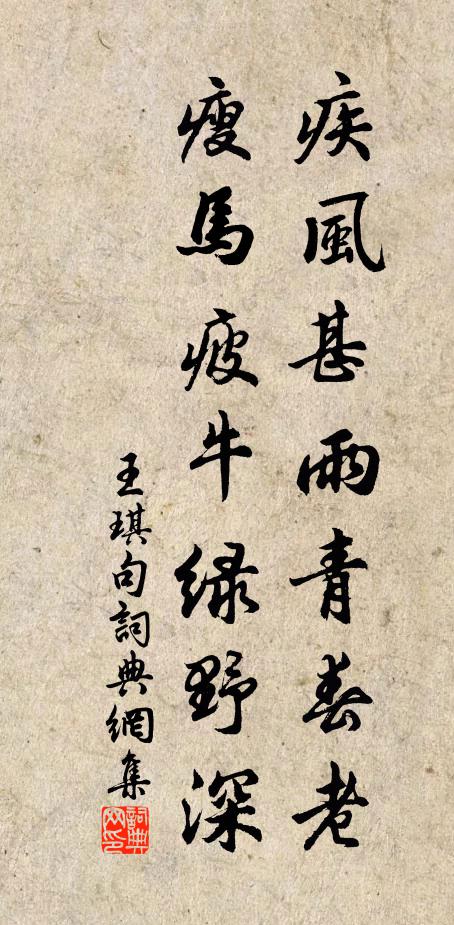 疾風甚雨青春老
瘦馬疲牛綠野深
王琪句詞典網集
詞典網印